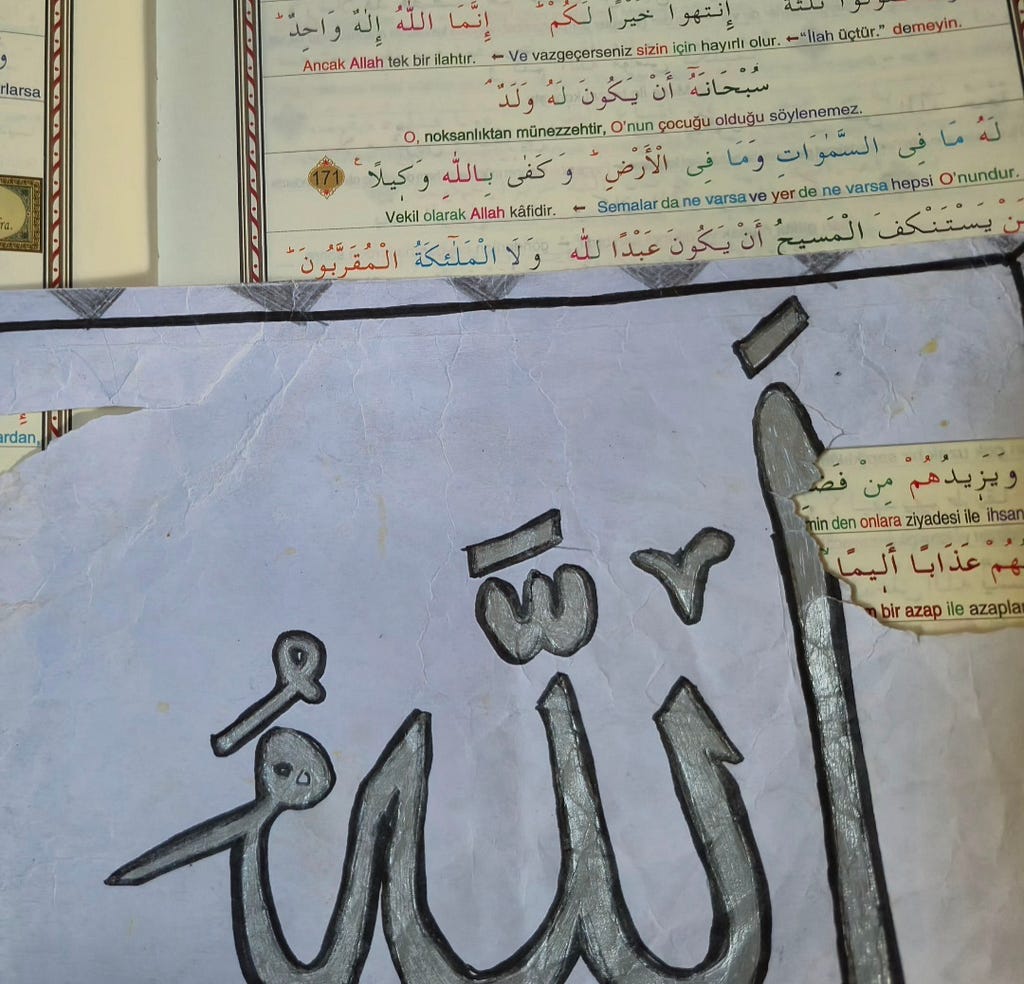 إِنْتَهُوا خَيْرًا لَكُمْ إِنَّمَا اللّٰهُ إِلٰهٌ وَاحِدٌ
Ancak Allah tek bir ilahtır. ← Ve vazgeçerseniz sizin için hayırlı olur. ←“İlah üçtür.” demeyin.
سُبْحَانَهُٓ أَنْ يَكُونَ لَهُ وَلَدٌ
O, noksanlıktan münezzehtir, O’nun çocuğu olduğu söylenemez.
لَهُ مَا فِى السَّمٰوَاتِ وَمَا فِى الْأَرْضِ وَكَفٰى بِاللّٰهِ وَكِيلًا 171
Vekil olarak Allah kâfidir. ← Semalar da ne varsa ve yer de ne varsa hepsi O’nundur.
يَسْتَنْكِفَ الْمَسِيحُ أَنْ يَكُونَ عَبْدًا لِلّٰهِ وَلَا الْمَلٰٓئِكَةُ الْمُقَرَّبُونَ
rlarsa
ardan,
وَيَزِيدُهُمْ مِنْ
den onlara ziyadesi ile ihsan
عَذَابًا أَلِيمًا
bir azap ile azaplar
اَللّٰهُ